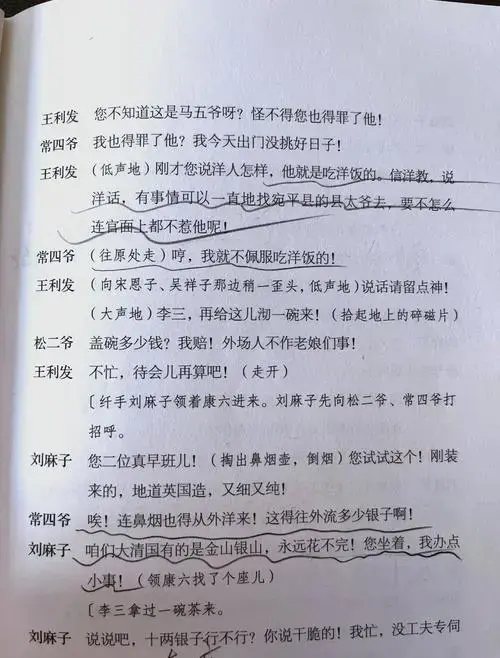 王利发 您不知道这是马五爷呀？怪不得您也得罪了他！
常四爷 我也得罪了他？我今天出门没挑好日子！
王利发 （低声地）刚才您说洋人怎样，他就是吃洋饭的。信洋教，说
洋话，有事情可以一直地找宛平县的县太爷去，要不怎么
连官面上都不惹他呢！
常四爷 （往原处走）哼，我就不佩服吃洋饭的！
王利发 （向宋恩子、吴祥子那边稍一歪头，低声地）说话请留点神！
（大声地）李三，再给这儿沏一碗来！（拾起地上的碎磁片）
松二爷 盖碗多少钱？我赔！外场人不作老娘们事！
王利发 不忙，待会儿再算吧！（走开）
〔纤手刘麻子领着康六进来。刘麻子先向松二爷、常四爷打
招呼。
刘麻子 您二位真早班儿！（掏出鼻烟壶，倒烟）您试试这个！刚装
来的，地道英国造，又细又纯！
常四爷 唉！连鼻烟也得从外洋来！这得往外流多少银子啊！
刘麻子 咱们大清国有的是金山银山，永远花不完！您坐着，我办点
小事！（领康六找了个座儿）
〔李三拿过一碗茶来。
刘麻子 说说吧，十两银子行不行？你说干脆的！我忙，没工夫专伺